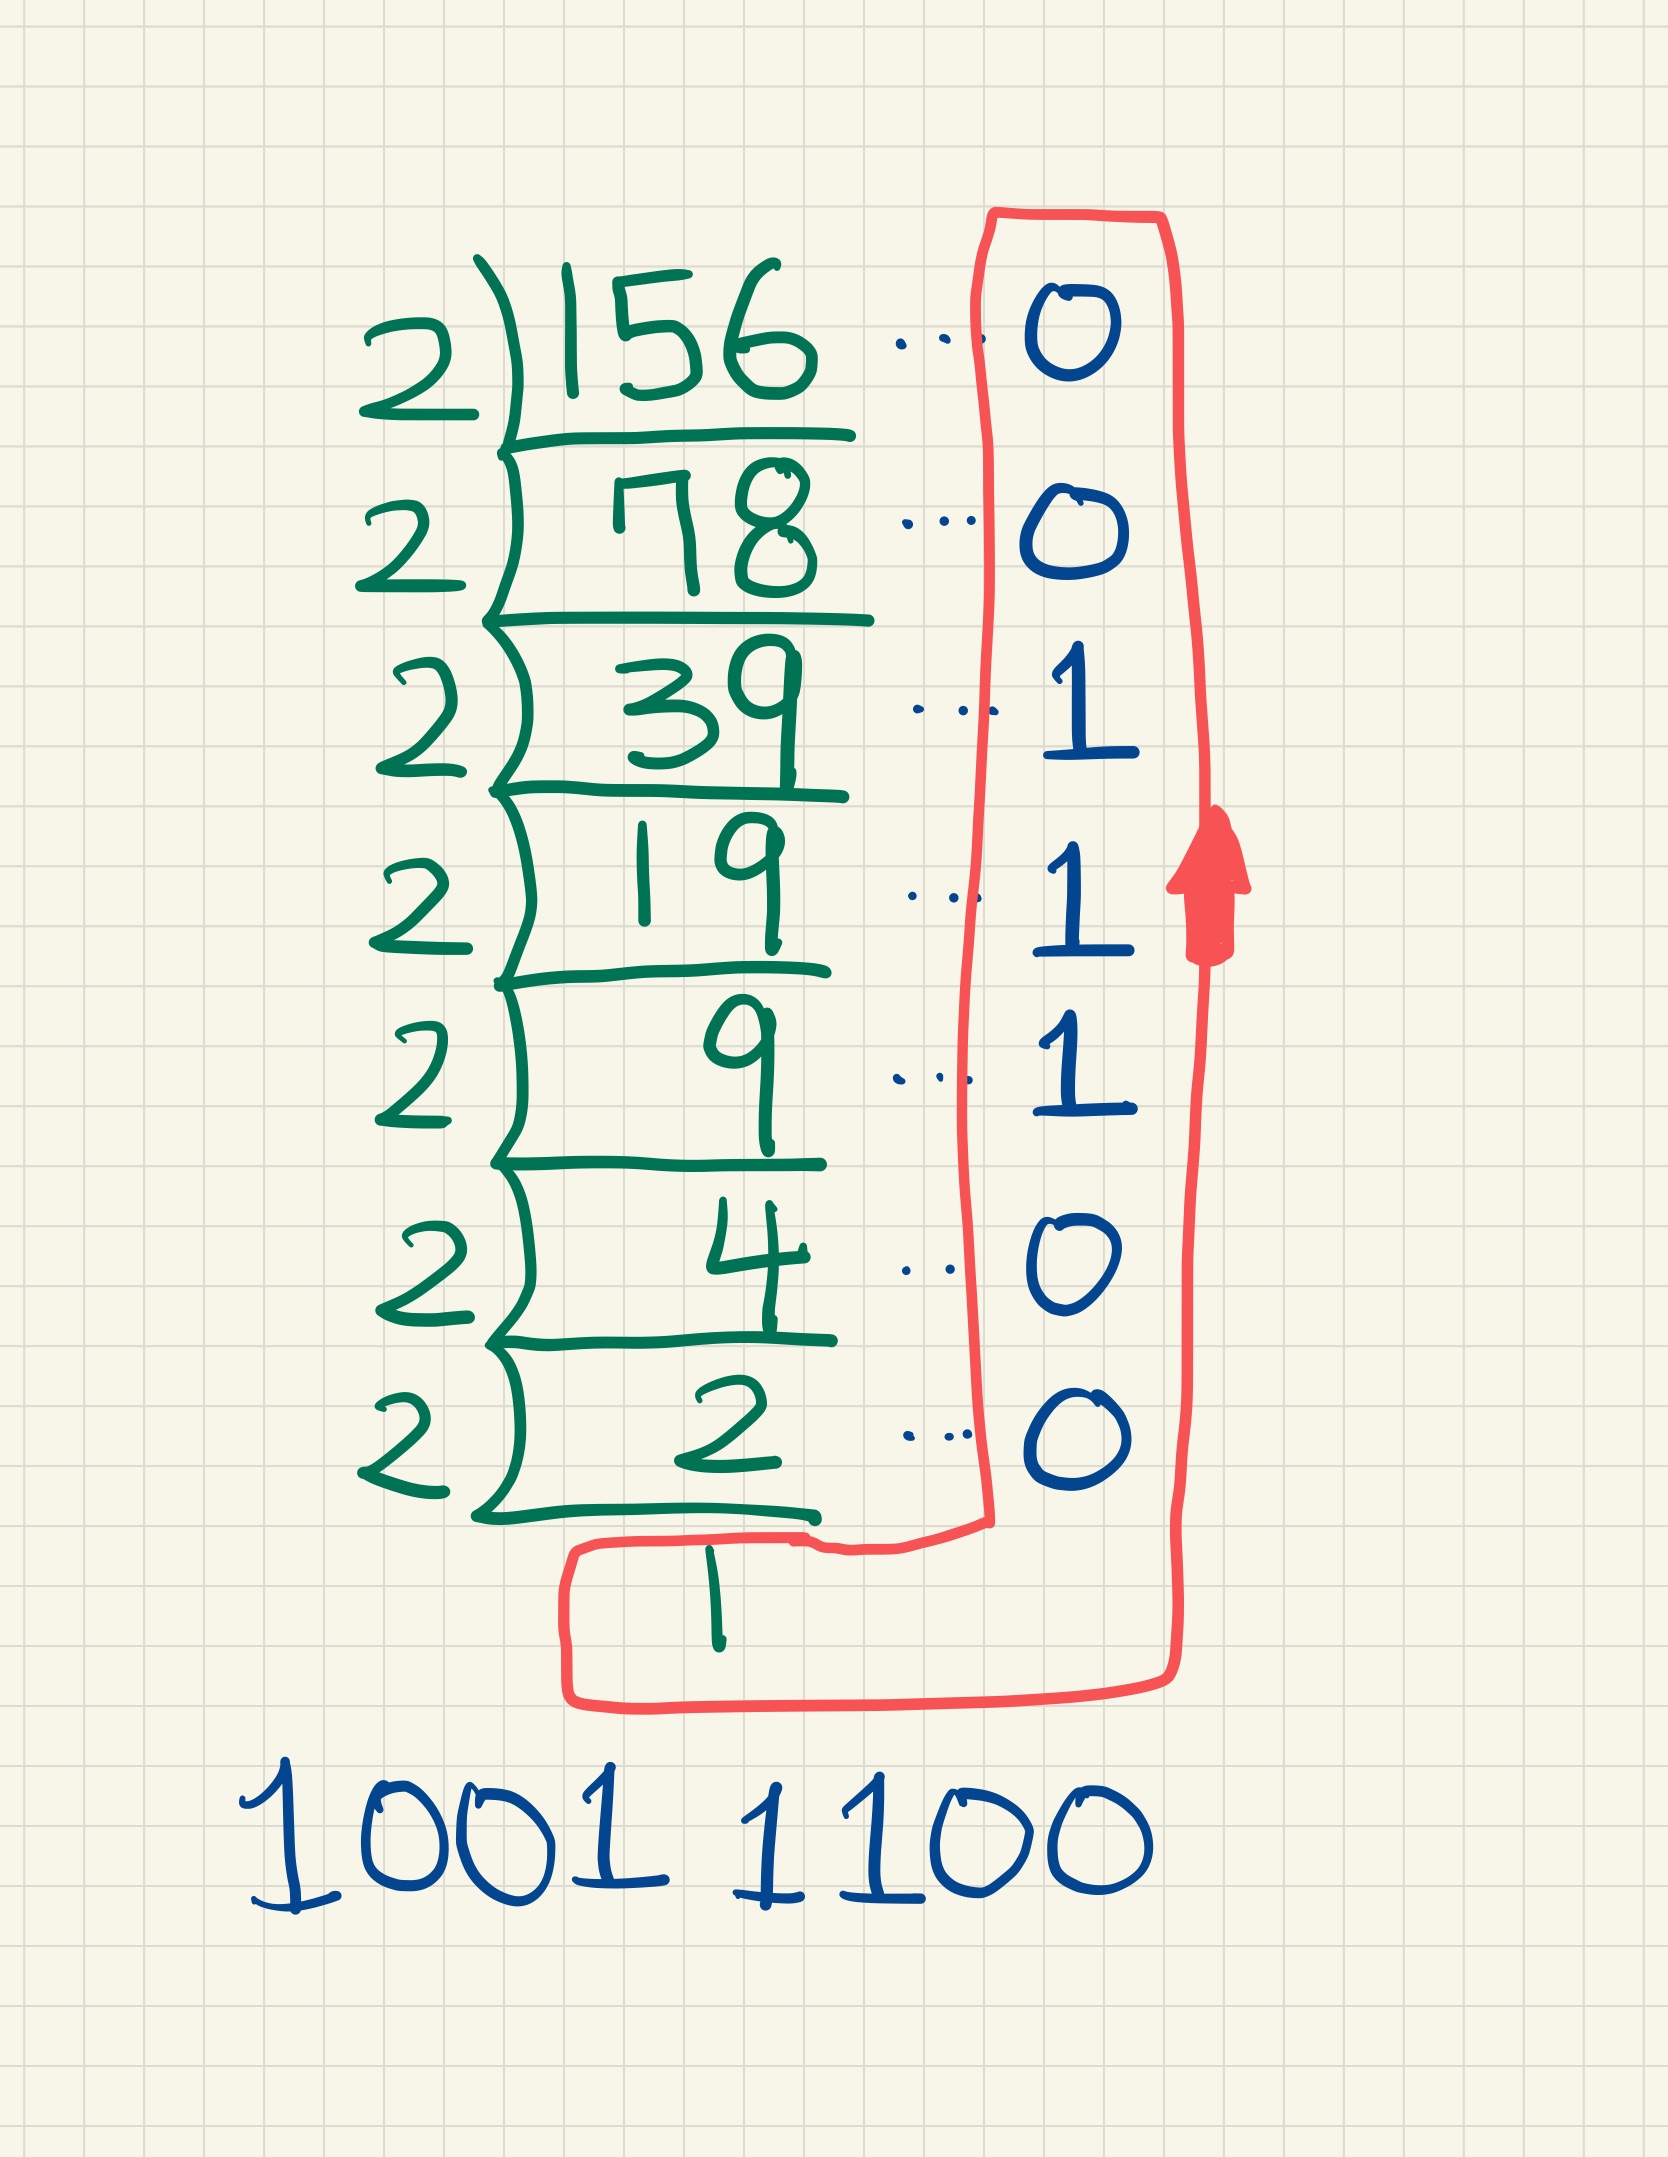 2 156 ... 0
2 78 ... 0
2 39 ... 1
2 19 ... 1
2 9 ... 1
2 4 .. 0
2 2 ... 0
1
1001 1100